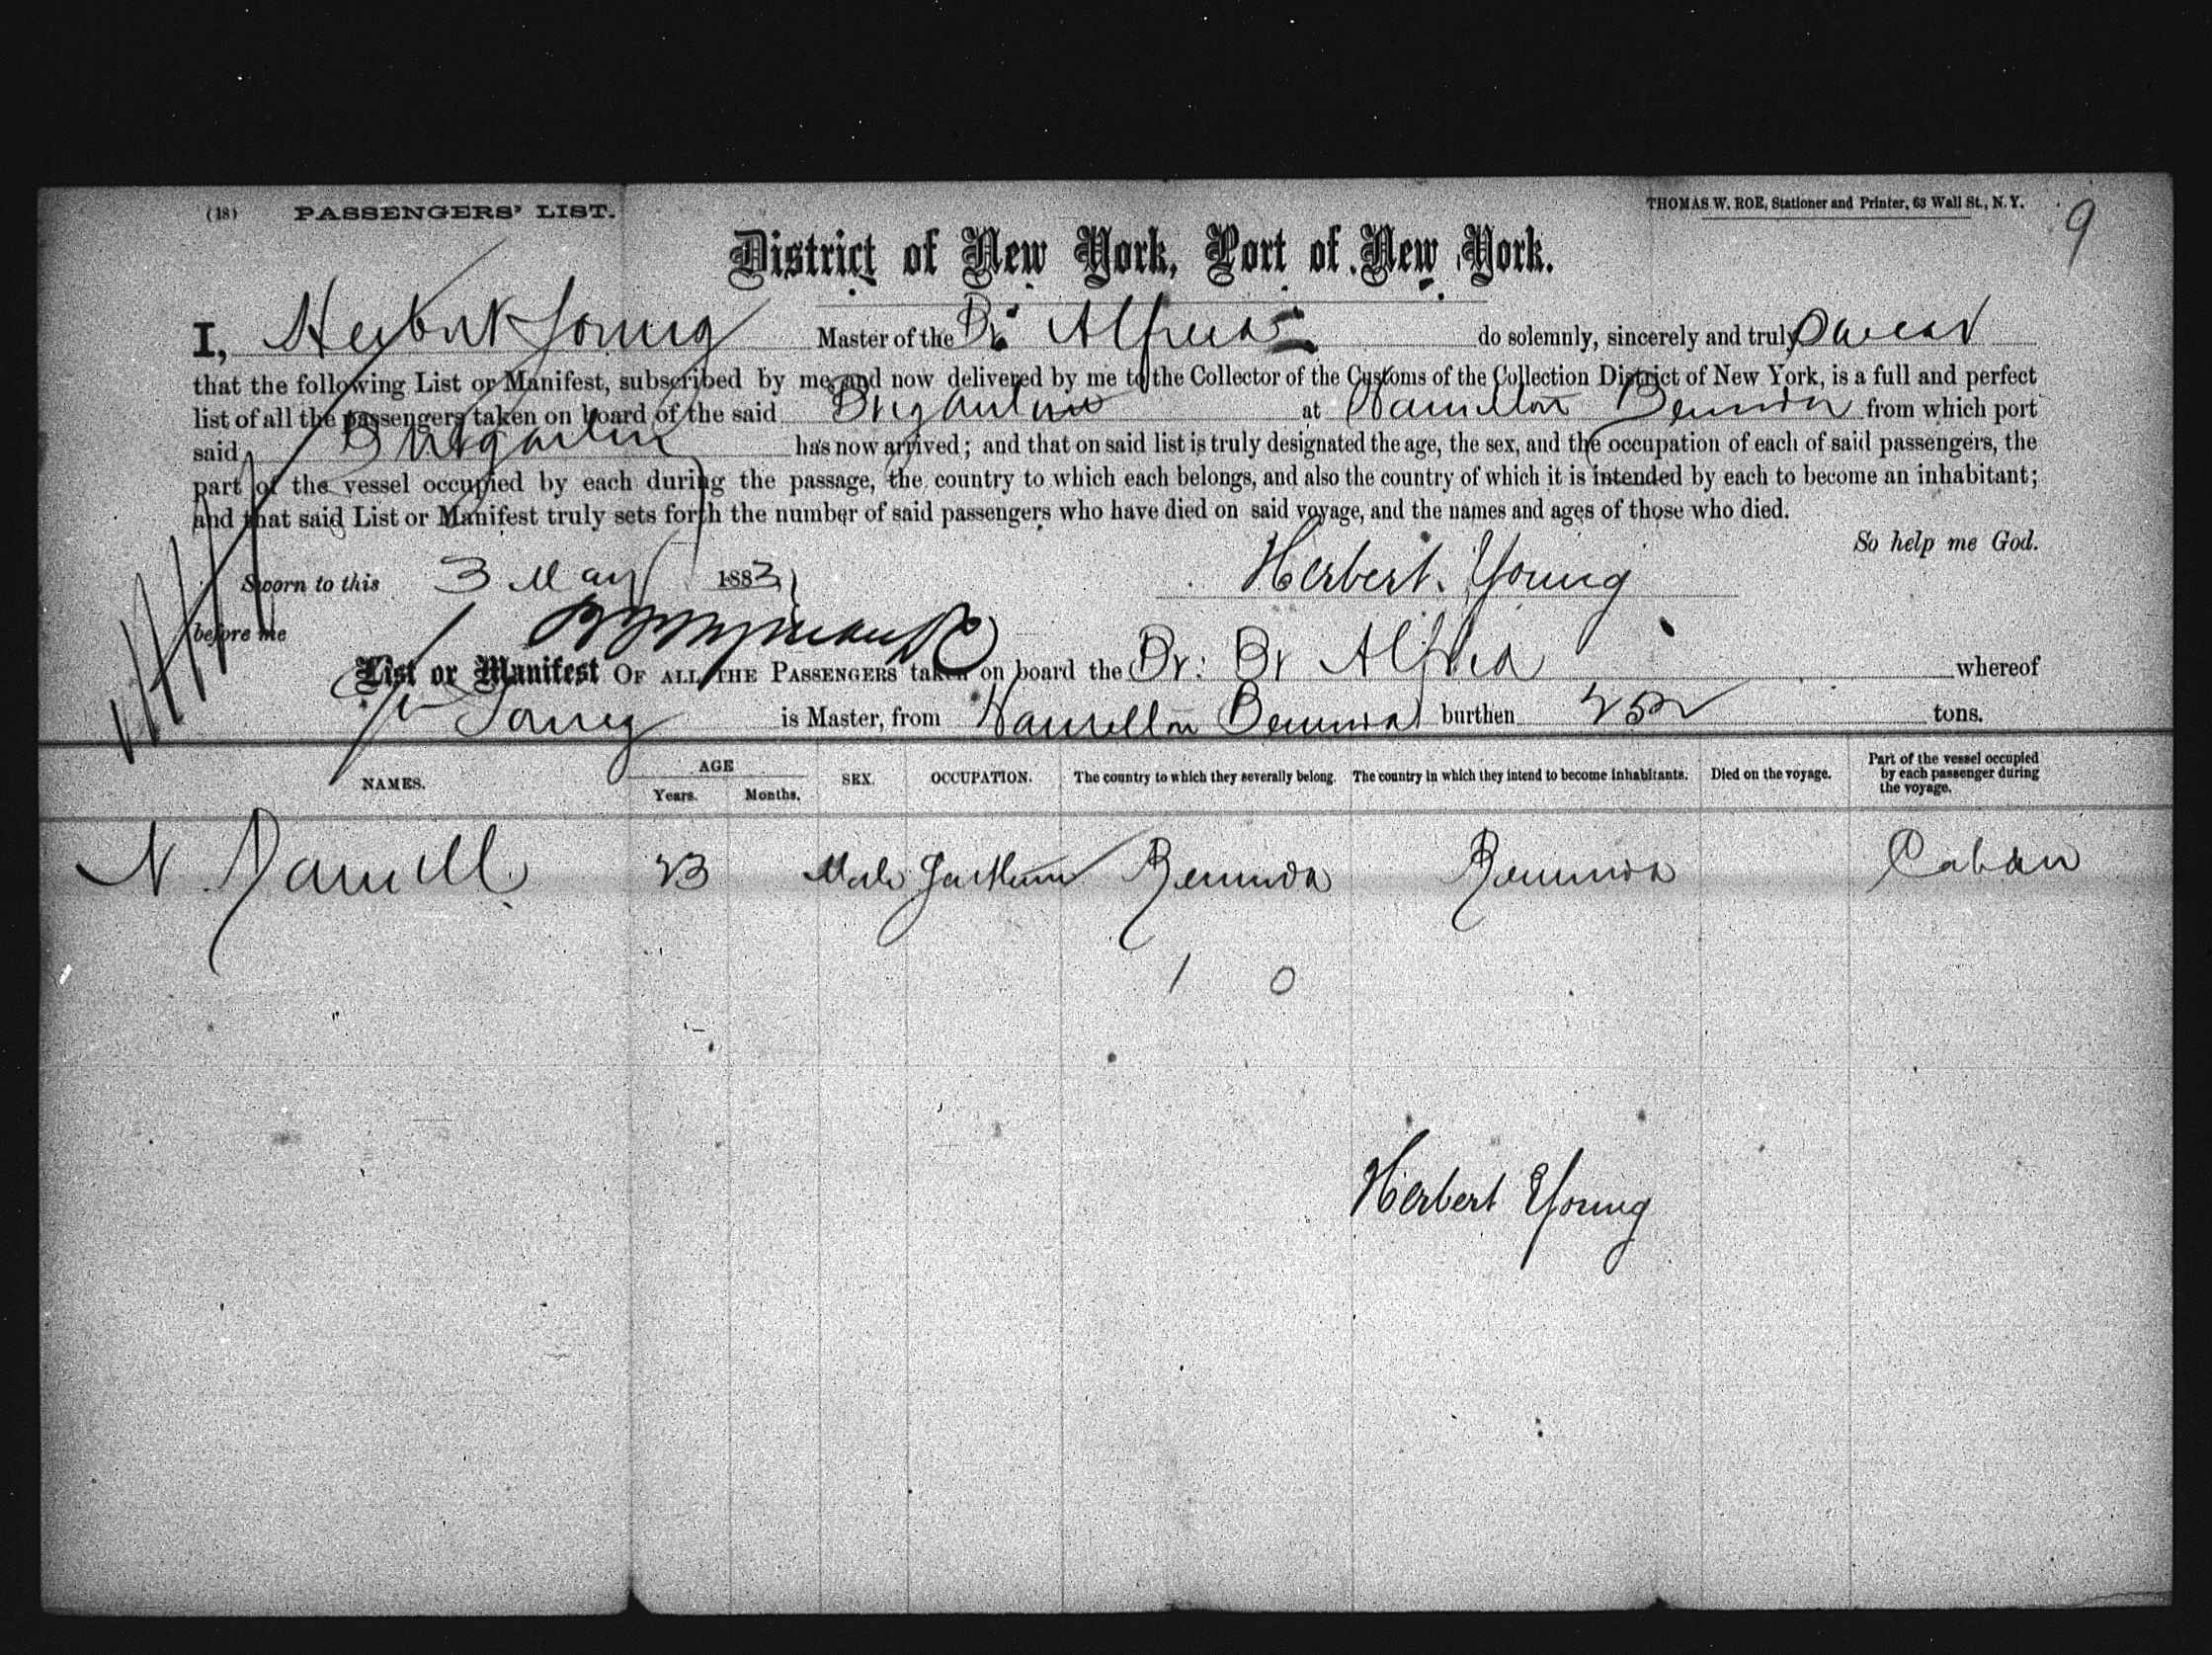 (18) PASSENGERS' LIST.
THOMAS W. ROE, Stationer and Printer, 63 Wall St., N. Y.
9
District of New York, Port of New York.
I, Herbert Young Master of the Br. do solemnly, sincerely and truly swear
that the following List or Manifest, subscribed by me and now delivered by me to the Collector of the Customs of the Collection District of New York, is a full and perfect
list of all the passengers taken on board of the said Brigantine at Hamilton Bermuda from which port
said Brigantine has now arrived; and that on said list is truly designated the age, the sex, and the occupation of each of said passengers, the
part of the vessel occupied by each during the passage, the country to which each belongs, and also the country of which it is intended by each to become an inhabitant;
and that said List or Manifest truly sets forth the number of said passengers who have died on said voyage, and the names and ages of those who died.
So help me God.
Sworn to this 3 May 1883
Herbert. Young
before me
List or Manifest OF ALL THE PASSENGERS taken on board the Br: Br whereof
Young is Master, from Hamilton Bermuda burthen tons.
NAMES. AGE Years. Months. SEX. OCCUPATION. The country to which they severally belong. The country in which they intend to become inhabitants. Died on the voyage. Part of the vessel occupied by each passenger during the voyage.
N 23 Male Bermuda Bermuda Cabin
1 0
Herbert Young